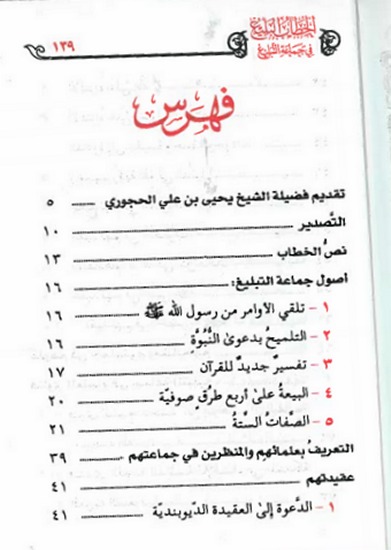 الخطاب البليغ
في جماعة التبليغ
١٣٩
فهرس
تقديم فضيلة الشيخ يحيى بن علي الحجوري ٥
التَّصدير ١٠
نصُّ الخطاب ١٣
أصول جماعة التبليغ: ١٦
١ - تلقي الأوامر من رسول الله ﷺ ١٦
٢ - التلميح بدعوى النُّبُوَّةِ ١٦
٣ - تفسيرٌ جديدٌ للقرآن ١٧
٤ - البيعةُ على أربع طرق صوفيّة ٢٠
٥ - الصِّفاتُ السِّتَّةُ ٢١
التعريفُ بعلمائهم والمنظرين في جماعتهم ٣٩
عقيدتهم ٤١
١ - الدعوة إلى العقيدة الدِّيوبنديّة ٤١